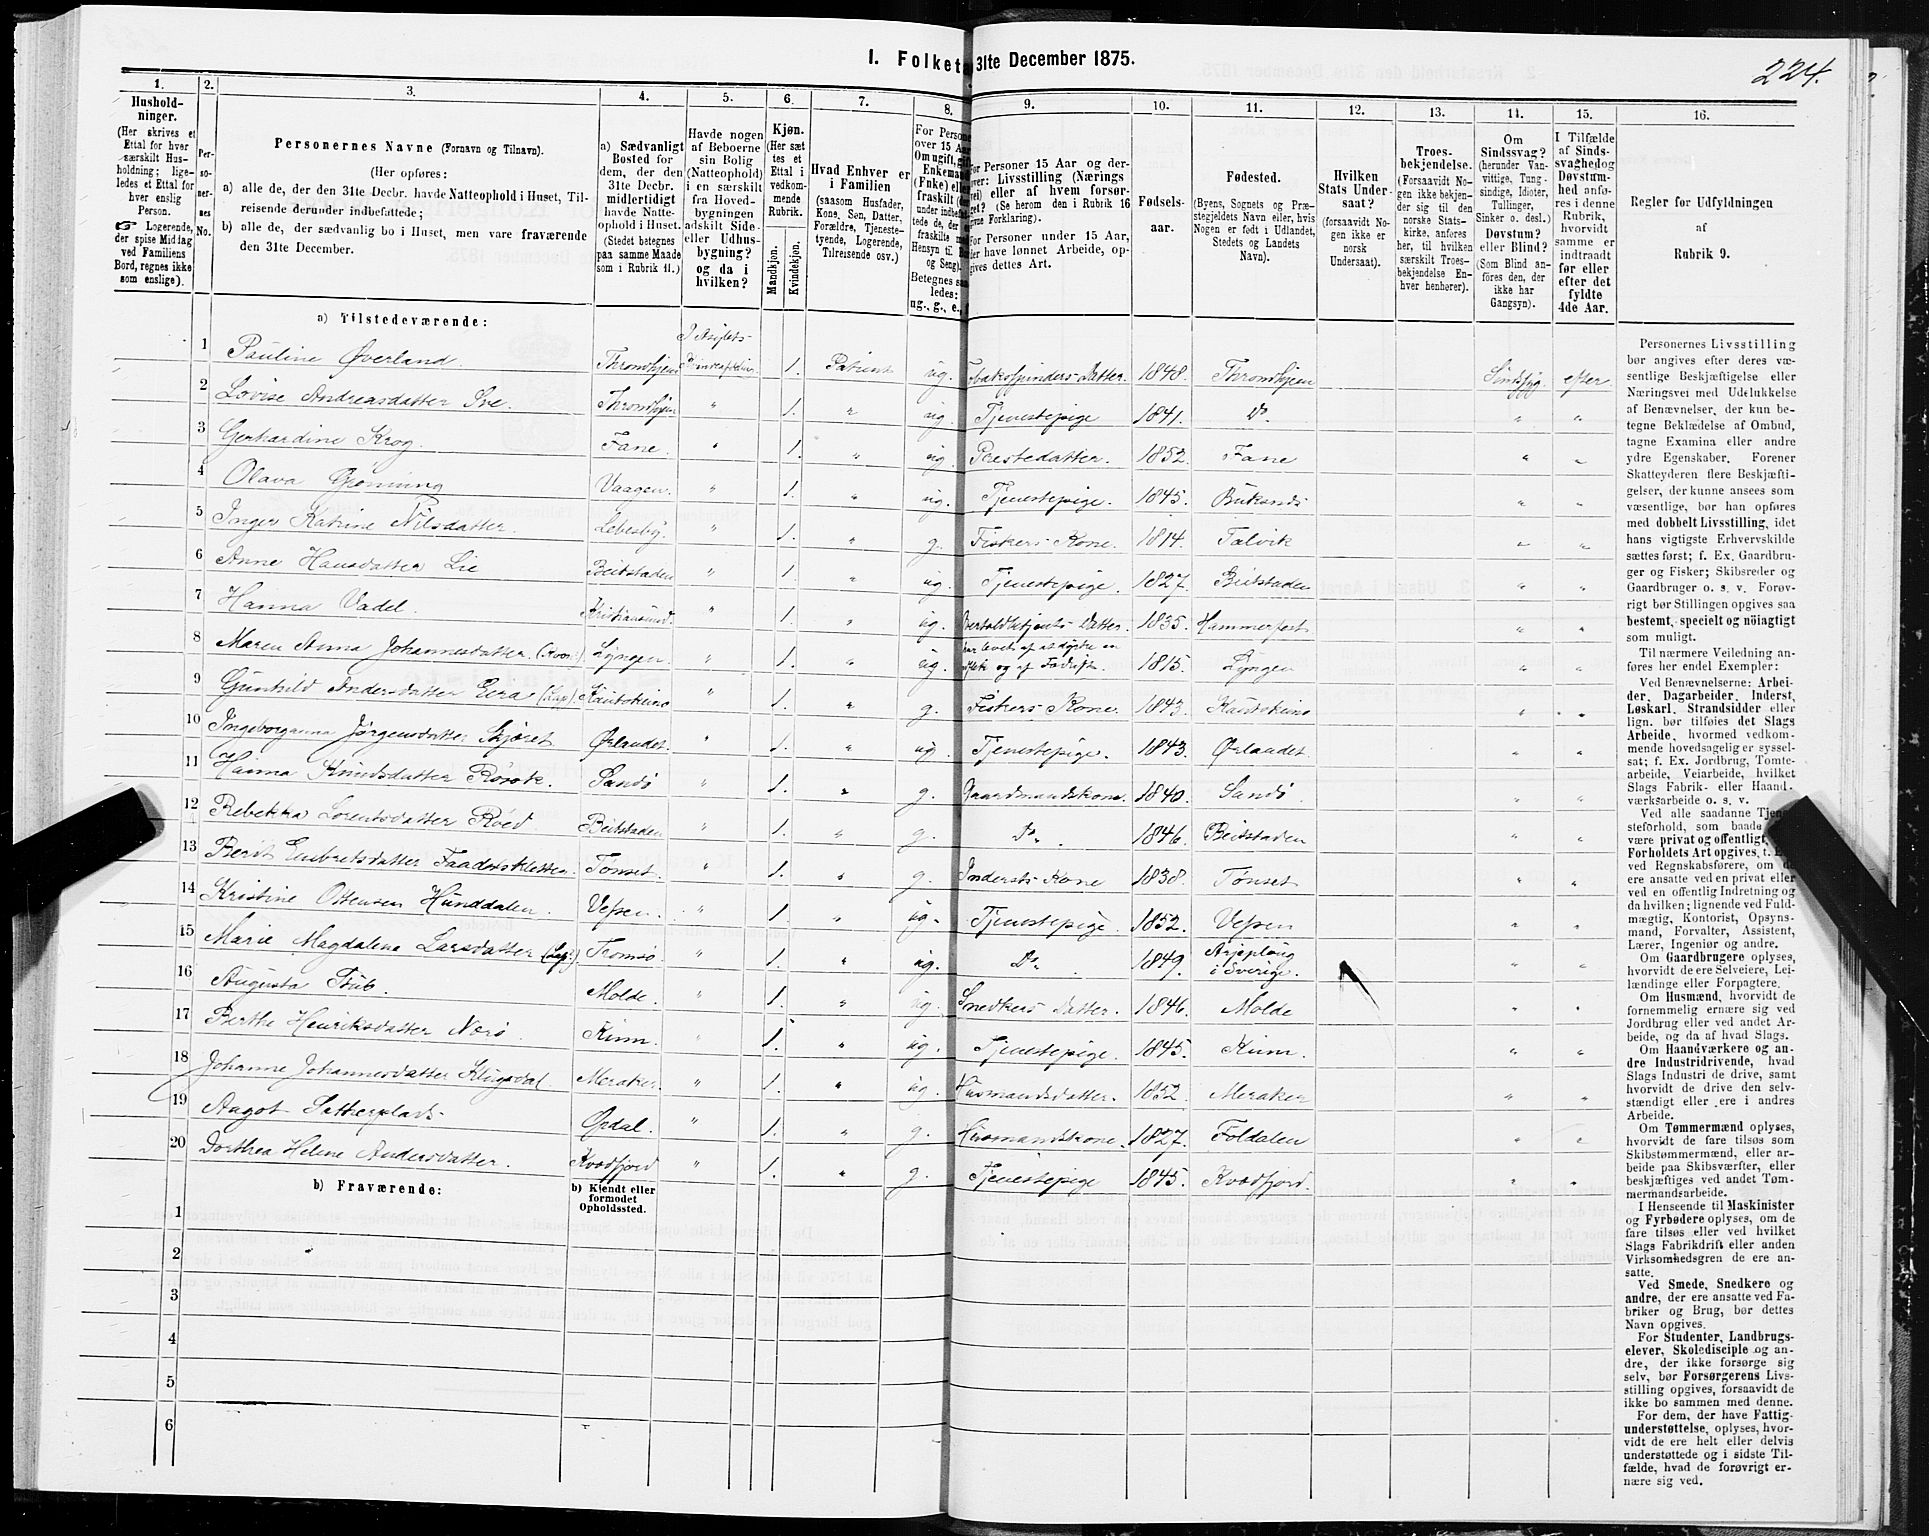 I. Folket 31te December 1875.
224.
1. 2. 3. 4. 5. 6. 7. 8. 9. 10. 11. 12. 13. 14. 15. 16.
Hushold-
ninger.
(Her skrives et
Ettal for hver
særskilt Hus-
holdning; lige-
ledes et Ettal for
hver enslig
Person.
☞ Logerende,
der spise Middag
ved Familiens
Bord, regnes ikke
som enslige).
Per-
so-
ner-
nes
No.
Personernes Navne (Fornavn og Tilnavn).
(Her opføres:
a) alle de, der den 31te Decbr. havde Natteophold i Huset, Til-
reisende derunder indbefattede;
b) alle de, der sædvanlig bo i Huset, men vare fraværende
den 31te December.
a) Sædvanligt
Bosted for
dem, der den
31te Decbr.
midlertidigt
havde Natte-
ophold i Huset.
(Stedet betegnes
paa samme Maade
som i Rubrik 11.)
Havde nogen
af Beboerne
sin Bolig
(Natteophold)
i en særskilt
fra Hoved-
bygningen
adskilt Side-
eller Udhus-
bygning?
og da i
hvilken?
Kjøn.
(Her sæt
tes et
Ettal i
vedkom-
mende
Rubrik.
Mandkjøn.
Kvindekjøn.
Hvad Enhver er
i Familien
(saasom Husfader,
Kone, Søn, Datter,
Forældre, Tjeneste-
tyende, Logerende,
Tilreisende osv.)
For Persone
over 15 Aar
Om ugift, gift
Enkemand
(Enke) elle
fraskilt
under
indbefattes
de, der er
fraskilte med
Hensyn til Bo
og Seng).
Betegnes saa
ledes:
ug., g., e., f.
For Personer 15 Aar og der-
over: Livsstilling (Nærings
vei) eller af hvem forsør-
get? (Se herom den i Rubrik 16
givne Forklaring).
For Personer under 15 Aar,
der have lønnet Arbeide, op-
gives dettes Art.
Fødsels-
aar.
Fødested.
(Byens, Sognets og Præ-
stegjeldets Navn eller, hvis
Nogen er født i Udlandet,
Stedets og Landets
Navn).
Hvilken
Stats Under-
saat?
(forsaavidt No-
gen ikke er
norsk
Undersaat).
Troes-
bekjendelse.
(Forsaavidt No-
gen ikke bekjen-
der sig til den
norske Stats-
kirke, anføres
her, til hvilken
særskilt Troes-
bekjendelse En-
hver henhører).
Om
Sindssvag?
(herunder Van-
vittige, Tung-
sindige, Idioter,
Tullinger,
Sinker o. desl.)
Døvstum?
eller Blind?
(Som Blind an-
føres den, der
ikke har
Gangsyn).
I Tilfælde
af Sinds-
svaghedog
Døvstum-
hed anfø-
res i denne
Rubrik,
hvorvidt
samme er
indtraadt
før eller
efter det
fyldte
4de Aar.
Regler for Udfyldningen
af
Rubrik 9.
a) Tilstedeværende:
1 Pauline Øverland. Throndhjem I Asylets Kvindeafdeling 1. Patient ug. Tobaksspinders-Datter. 1848. Throndhjem Sindssyg. efter.
2 Lovise Andreasdatter Sve. Throndhjem " 1. " ug. Tjenestepige 1841. Do. " "
3 Gerhardine Krog. Fane. " 1. " ug. Prestedatter. 1852. Fane " "
4 Olava Grønning Vaagen. " 1. " ug. Tjenestepige. 1845. Buksnæs " "
5 Inger Katrine Nilsdatter. Lebesby. " 1. " g. Fiskers-Kone. 1814. Talvik " "
6 Anne Hansdatter Lie Beitstaden " 1. " ug. Tjenestepige. 1827. Beitstaden " "
7 Hanna Vadel. Kristiansund. " 1. " ug. Overtoldbetjents-Datter. 1835. Hammerfest " "
8 Maren Anna Johannesdatter (Kvæn) Lyngen. " 1. " ug. har levet af at dyrke en og af Fædrift. 1815. Lyngen " "
9 Gunhild Andersdatter Eira (Lap). Kautokeino " 1. " g. Fiskers-Kone. 1843. Kautokeino " "
10 Ingeborganna Jørgensdatter Skjøret Ørlandet. " 1. " ug. Tjenestepige. 1843. Ørlandet. " "
11 Hanna Knudsdatter Rørvik. Sandø " 1. " g. Gaardmandskone. 1840. Sandø. " "
12 Rebekka Lorentsdatter Røed. Beitstaden " 1. " g. Do. 1846. Beitstaden " "
13 Berit Embretsdatter Faadersletten. Tønset. " 1. " g. Inderst-Kone 1838. Tønset " "
14 Kristine Ottensen Hunddalen. Vefsen. " 1. " ug. Tjenestepige. 1852. Vefsen " "
15 Marie Magdalena Larsdatter (Lap.). Tromsø. " 1. " ug. Do. 1849. Arjeploug i Sverige. " "
16 Augusta Stub. Molde. " 1. " ug. Snedkers-Datter. 1846. Molde " "
17 Berthe Henriksdatter Nærø. Kinn. " 1. " ug. Tjenestepige. 1845. Kinn. " "
18 Johanne Johannesdatter Klingsdal. Meraker. " 1. " ug. Husmandsdatter. 1852. Meraker " "
19 Aagot Sætherplads. Opdal. " 1. " g. Husmandskone. 1827. Foldalen " "
20 Dorthea Helene Andersdatter. Kvædfjord " 1. " g. Tjenestepige 1845. Kvædfjord. " "
b) Fraværende:
b) Kjendt eller
formodet
Opholdssted.
1
2
3
4
5
6
Personernes Livsstilling
bør angives efter deres væ-
sentlige Beskjæftigelse eller
Næringsvei med Udelukkelse
af Benævnelser, der kun be-
tegne Beklædelse af Ombud,
tagne Examina eller andre
ydre Egenskaber. Forener
Skatteyderen flere Beskjæfti-
gelser, der kunne ansees som
væsentlige, bør han opføres
med dobbelt Livsstilling, idet
hans vigtigste Erhvervskilde
sættes først; f. Ex. Gaardbru-
ger og Fisker; Skibsreder og
Gaardbruger o. s. v. Forøv-
rigt bør Stillingen opgives saa
bestemt, specielt og nöiagtigt
som muligt.
Til nærmere Veiledning an-
føres her endel Exempler:
Ved Benævnelserne: Arbei-
der, Dagarbeider, Inderst,
Løskarl, Strandsidder eller
lign. bør tilføies det Slags
Arbeide, hvormed vedkom-
mende hovedsagelig er syssel-
sat; f. Ex. Jordbrug, Tomte-
arbeide, Veiarbeide, hvilket
Slags Fabrik- eller Haand-
værksarbeide o. s. v.
Ved alle saadanne Tjene-
steforhold, som baade
være privat og offentlig,
Forholdets Art opgives, t. E
ved Regnskabsførere, om de
ere ansatte ved en privat eller
ved en offentlig Indretning og
da hvilken; lignende ved Fuld-
mægtig, Kontorist, Opsyns-
mand, Forvalter, Assistent,
Lærer, Ingeniør og andre.
Om Gaardbrugere oplyses,
hvorvidt de ere Selveiere, Lei-
lændinge eller Forpagtere.
Om Husmænd, hvorvidt de
fornemmelig ernære sig ved
Jordbrug eller ved andet Ar-
beide, og da af hvad Slags.
Om Haandværkere og an-
dre Industridrivende, hvad
Slags Industri de drive, samt
hvorvidt de drive den selv-
stændigt eller ere i andres
Arbeide.
Om Tømmermænd oplyses,
hvorvidt de fare tilsøs som
Skibstømmermænd, eller ar-
beide paa Skibsværfter, eller
beskjæftiges ved andet Tøm-
mermandsarbeide.
I Henseende til Maskinister
og Fyrbødere oplyses, om de
fare tilsøs eller ved hvilket
Slags Fabrikdrift eller anden
Virksomhedsgren de ere an-
satte.
Ved Smede, Snedkere og
andre, der ere ansatte ved Fa-
briker og Brug, bør dettes
Navn opgives.
For Studenter, Landbrugs-
elever, Skoledisciple og an-
dre, der ikke forsørge sig
selv, bør Forsørgerens Livs-
stilling opgives, forsaavidt de
ikke bo sammen med denne.
For dem, der have Fattig-
understøttelse, oplyses, hvor-
vidt de ere helt eller delvis
understøttede og i sidste Til-
fælde, hvad de forøvrigt er-
nære sig ved.